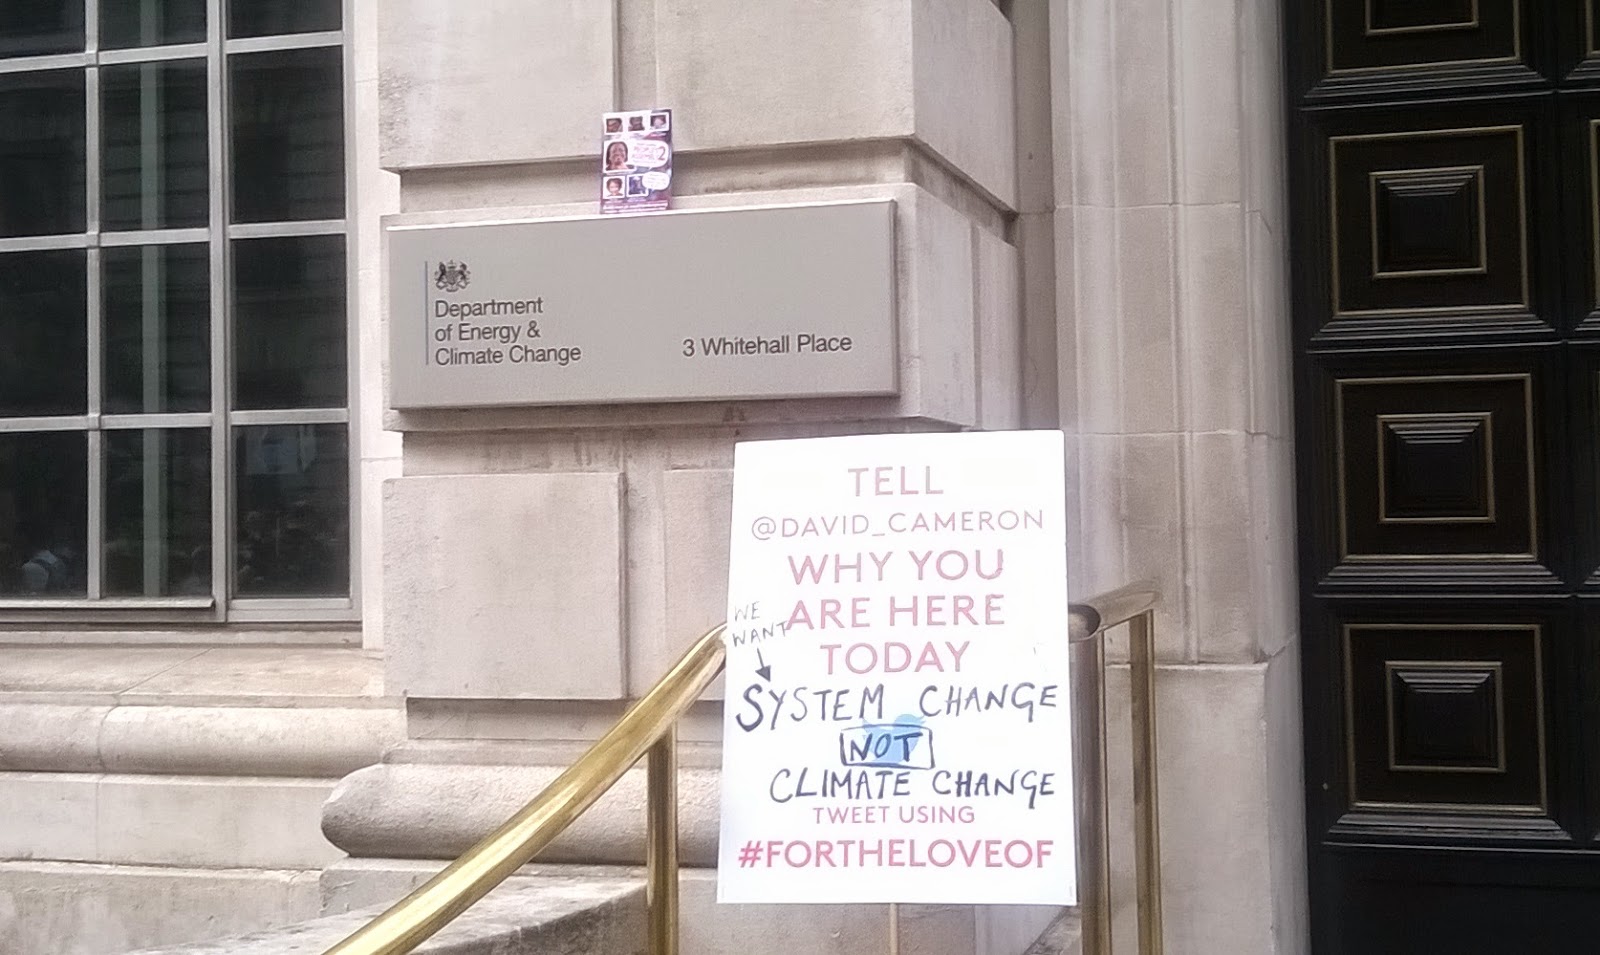 Department
of Energy &
Climate Change
3 Whitehall Place
TELL
@DAVID_CAMERON
WHY YOU
ARE HERE
TODAY
WE
WANT
SYSTEM CHANGE
NOT
CLIMATE CHANGE
TWEET USING
#FORTHELOVEOF